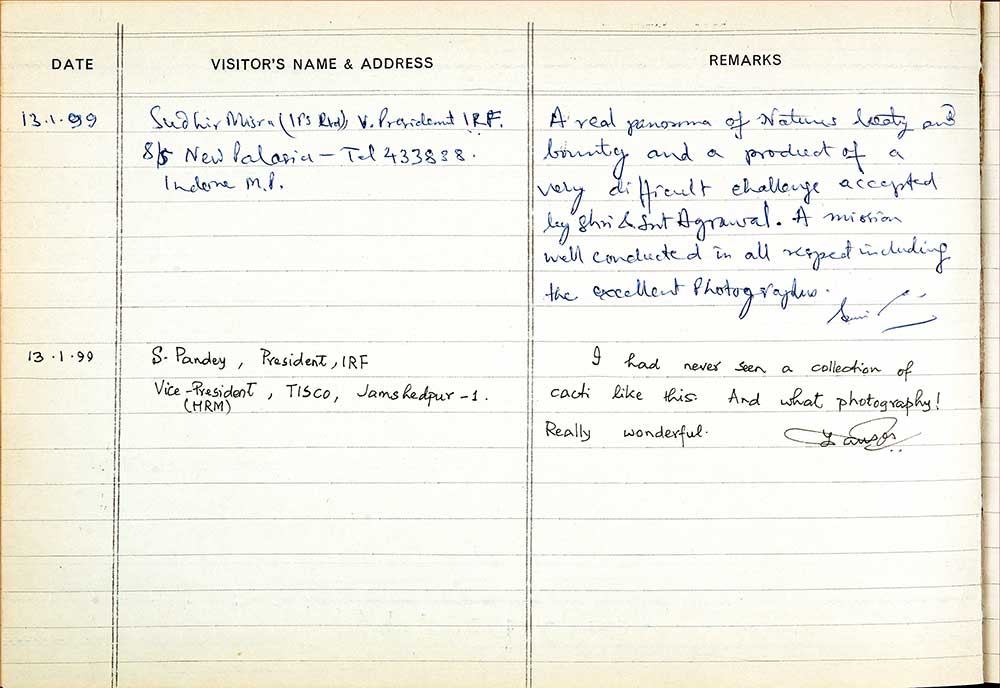 DATE
VISITOR'S NAME & ADDRESS
REMARKS
13.1.99
Sudhir Misra (IPS Rtd), V. President IRF.
8/5 New Palasia - Tel 433838.
Indore M.P.
A real panorma of Natures beaty and
bounty and a product of a
very difficult challenge accepted
by Shri & Smt Agrawal. A mission
well conducted in all respect including
the excellent Photographs.
13.1.99
S. Pandey, President, IRF
Vice-President, TISCO, Jamshedpur-1.
(HRM)
I had never seen a collection of
cacti like this. And what photography!
Really wonderful.